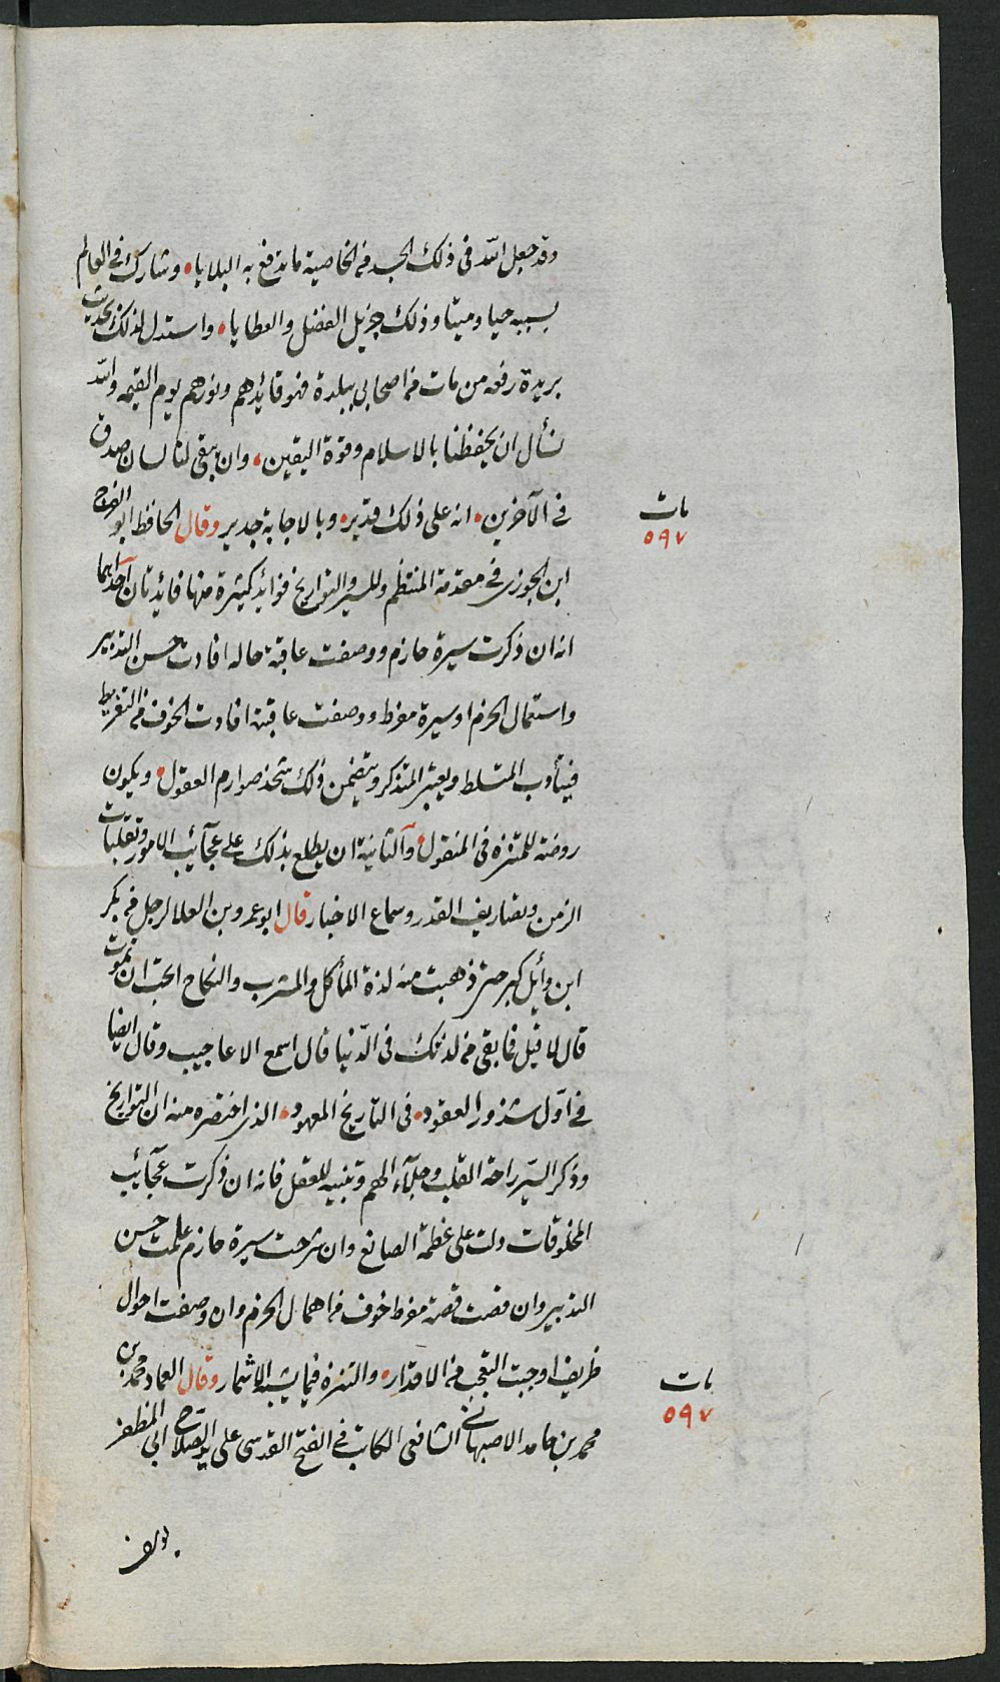 وقد جعل الله فى ذلك الجسد من الخاصية ما يدفع به البلايا وشارك فى العالم
بسببه حيا وميتا وذلك جزيل الفضل والعطايا واستدل لذلك بحديث
بريدة رفعه من مات من اصحابى ببلدة فهو قائدهم ونورهم يوم القيمه والله
نسأل ان يحفظنا بالاسلام وقوة اليقين وان يبقى لنا لسان صدق
فى الآخرين انه على ذلك قدير وبالاجابة جدير وقال الحافظ ابو الفرج
مات
٥٩٧
ابن الجوزى فى مقدمة المنتظم وللسير والتواريخ فوائد كثيرة منها فائدتان احداهما
انه ان ذكرت سيرة حازم ووصفت عاقبة حاله افادت حسن التدبير
واستعمال الحزم او سيرة مفرط ووصفت عاقبته افادت الخوف من التفريط
فيتأدب المتسلط ويعتبر المتذكر ويتضمن ذلك شحذ صوارم العقول ويكون
روضة للمتنزه فى المنقول والثانية ان يطلع بذلك على عجآئب الامور وتقلبات
الزمن وتصاريف القدر وسماع الاخبار قال ابو عمرو بن العلا لرجل من بكر
ابن وآئل كبر حتى ذهبت منه لذة المأكل والمشرب والنكاح اتحب ان تموت
قال لا قيل فما بقى من لذتك فى الدّنيا قال اسمع الاعاجيب وقال ايضا
فى اوّل شذور العقود فى التاريخ المعهود الذى اختصره منه ان التواريخ
وذكر السّير راحة القلب وجلآء الهم وتنبيه للعقل فانه ان ذكرت عجآئب
المخلوقات دلت على عظمة الصانع وان شرحت سيرة حازم علمت حسن
التدبير وان قصت قصة مفرط خوفت من اهمال الحزم وان وصفت احوال
ظريف اوجبت التعجب من الاقدار والتنزه فيما يشبه الاسمار وقال العماد محمد بن
مات
٥٩٧
محمد بن حامد الاصبهانى الشافعى الكاتب فى الفتح القدسى على يد الصلاح ابى المظفر
يوسف